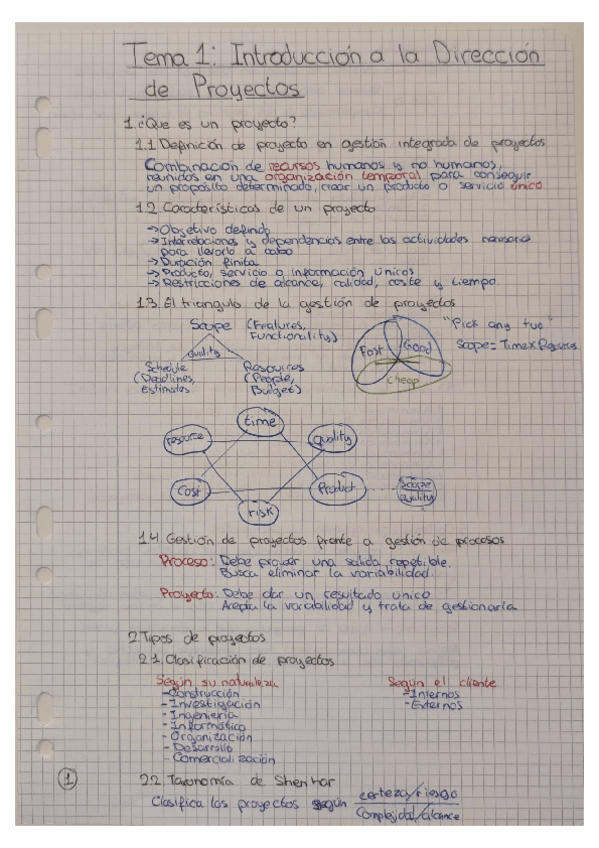 Tema 1: Introducción a la Dirección
de Proyectos
1. ¿Que es un proyecto?
1.1 Definición de proyecto en gestión integrada de proyectos
Combinación de recursos humanos y no humanos,
reunidos en una organización temporal para conseguir
un proposito determinado, crear un producto o servicio único
1.2 Características de un proyecto
→ Objetivo definido
→ Interrelaciones y dependencias entre las actividades necesarias
para llevarlo a cabo
→ Duración finita
→ Producto, servicio o información únicos
→ Restricciones de alcance, calidad, coste y tiempo
1.3. El triangulo de la gestión de proyectos
Scope (Features,
Functionality)
Quality
Schedule
(Deadlines,
Estimates
Resources
(People,
Budget)
Fast
Good
cheap
"Pick any two"
Scope = Time x
time
resource
quality
cost
Product
risk
Scope
Quality
1.4. Gestión de proyectos frente a gestión de procesos
Proceso: Debe proveer una salida repetible.
Busca eliminar la variabilidad.
Proyecto: Debe dar un resultado unico
Acepta la variabilidad y trata de gestionarla
2. Tipos de proyectos
2.1. Clasificación de proyectos
Según su naturaleza
- Construcción
- Investigación
- Ingeniería
- Informático
- Organización
- Desarrollo
- Comercialización
Según el cliente
- Internos
- Externos
2.2. Taxonomía de Shenhar
Clasifica los proyectos según certeza/riesgo
Complejidad/alcance
1